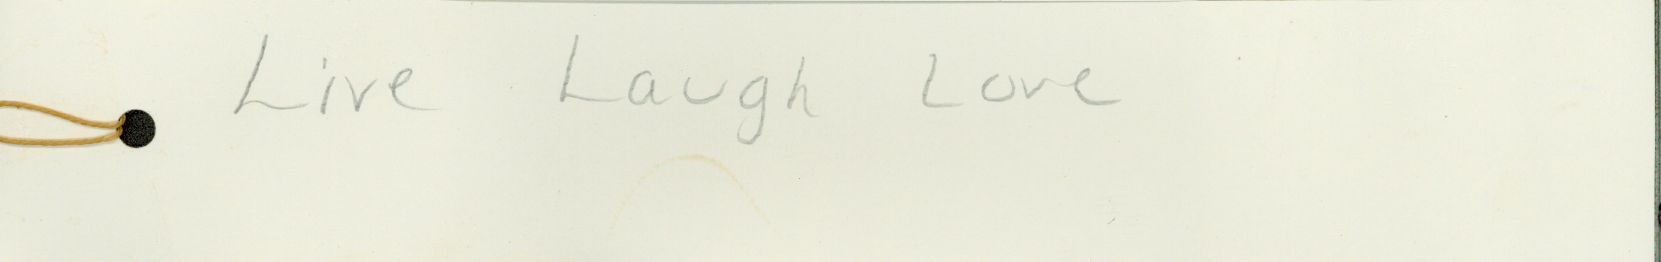 Live Laugh Love